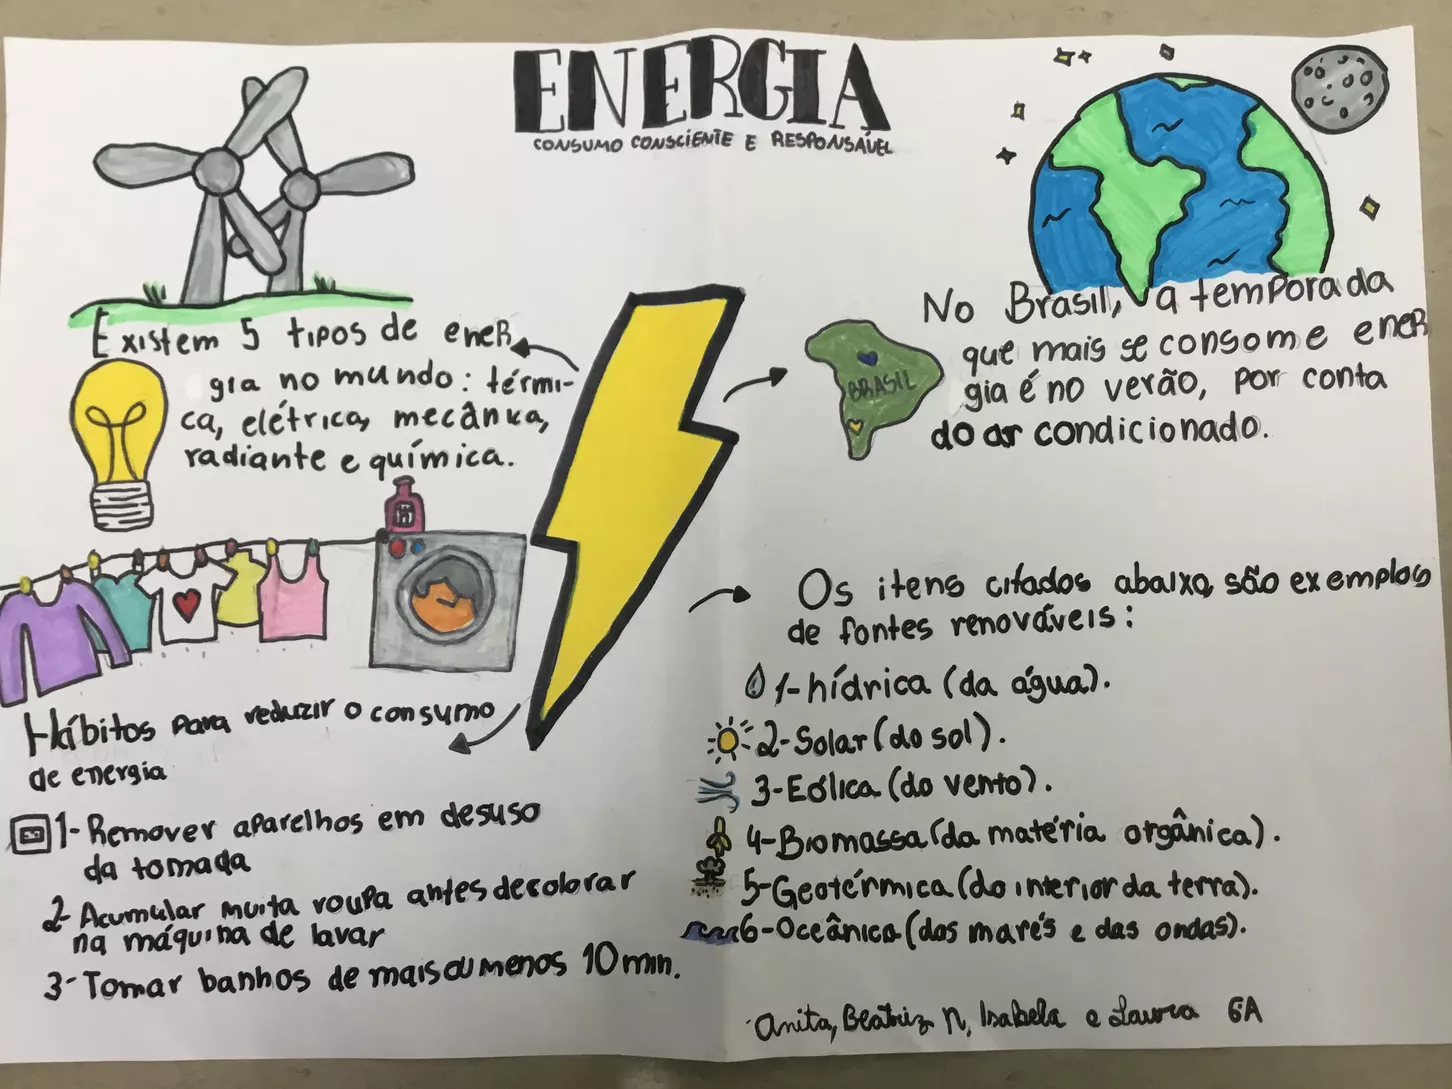 ENERGIA
CONSUMO CONSCIENTE E RESPONSÁVEL
Existem 5 tipos de ener
gia no mundo: térmi-
ca, elétrica, mecânica,
radiante e química.
No Brasil, a temporada
que mais se consome ener
gia é no verão, por conta
do ar condicionado.
BRASIL
Os itens citados abaixo, são exemplos
de fontes renováveis:
1-hídrica (da água).
2-Solar (do sol).
3-Eólica (do vento).
4-Biomassa (da matéria orgânica).
5-Geotérmica (do interior da terra).
6-Oceânica (das marés e das ondas).
Hábitos para reduzir o consumo
de energia
1-Remover aparelhos em desuso
da tomada
2-Acumular muita roupa antes de colorar
na máquina de lavar
3-Tomar banhos de mais ou menos 10 min.
Anita, Beatriz N, Isabela e Laura 6A